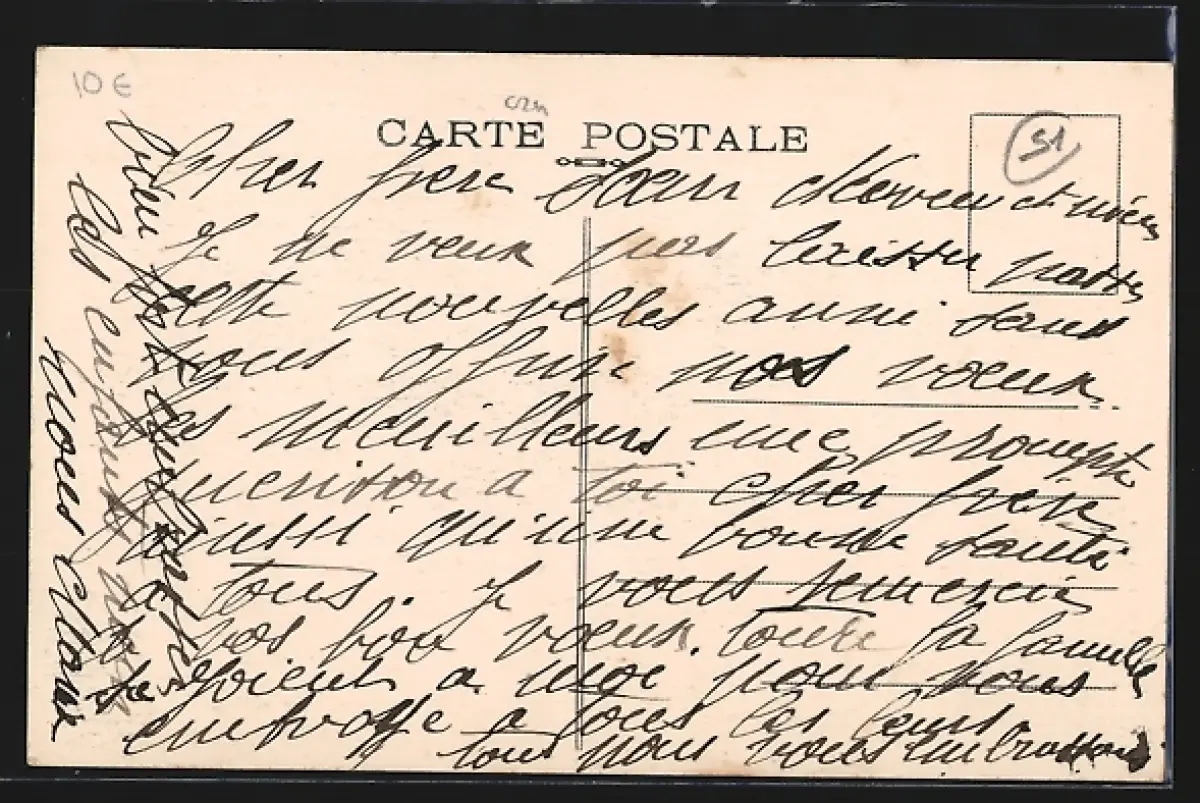 10 €
CARTE POSTALE
51
Cher frère Sœur Neveu et nièces
Je ne veux pas laisser passer
cette nouvelles anné sans
vous offrir nos vœux
les meilleurs une prompte
guerison a toi cher frère
ainssi qu'une bonne santé
a tous. Je vous remerci
de vos bon vœux. toute la famille
se joient a moi pour vous
embrasse a tous
tous nous vous embrassons
bien fort
les enfants
nous